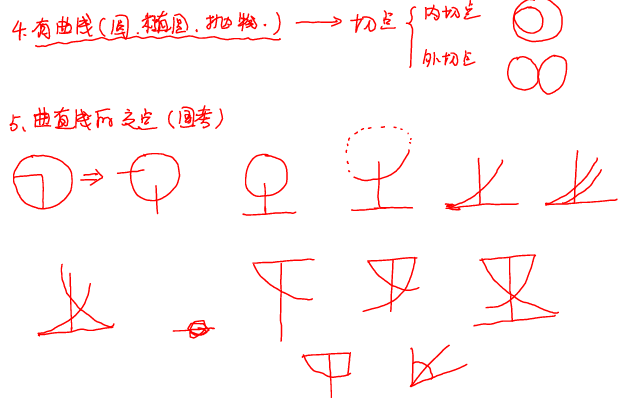 4.有曲线(圆.椭圆.抛物.)⟶切点{内切点
外切点
5、曲直线的交点(国考)